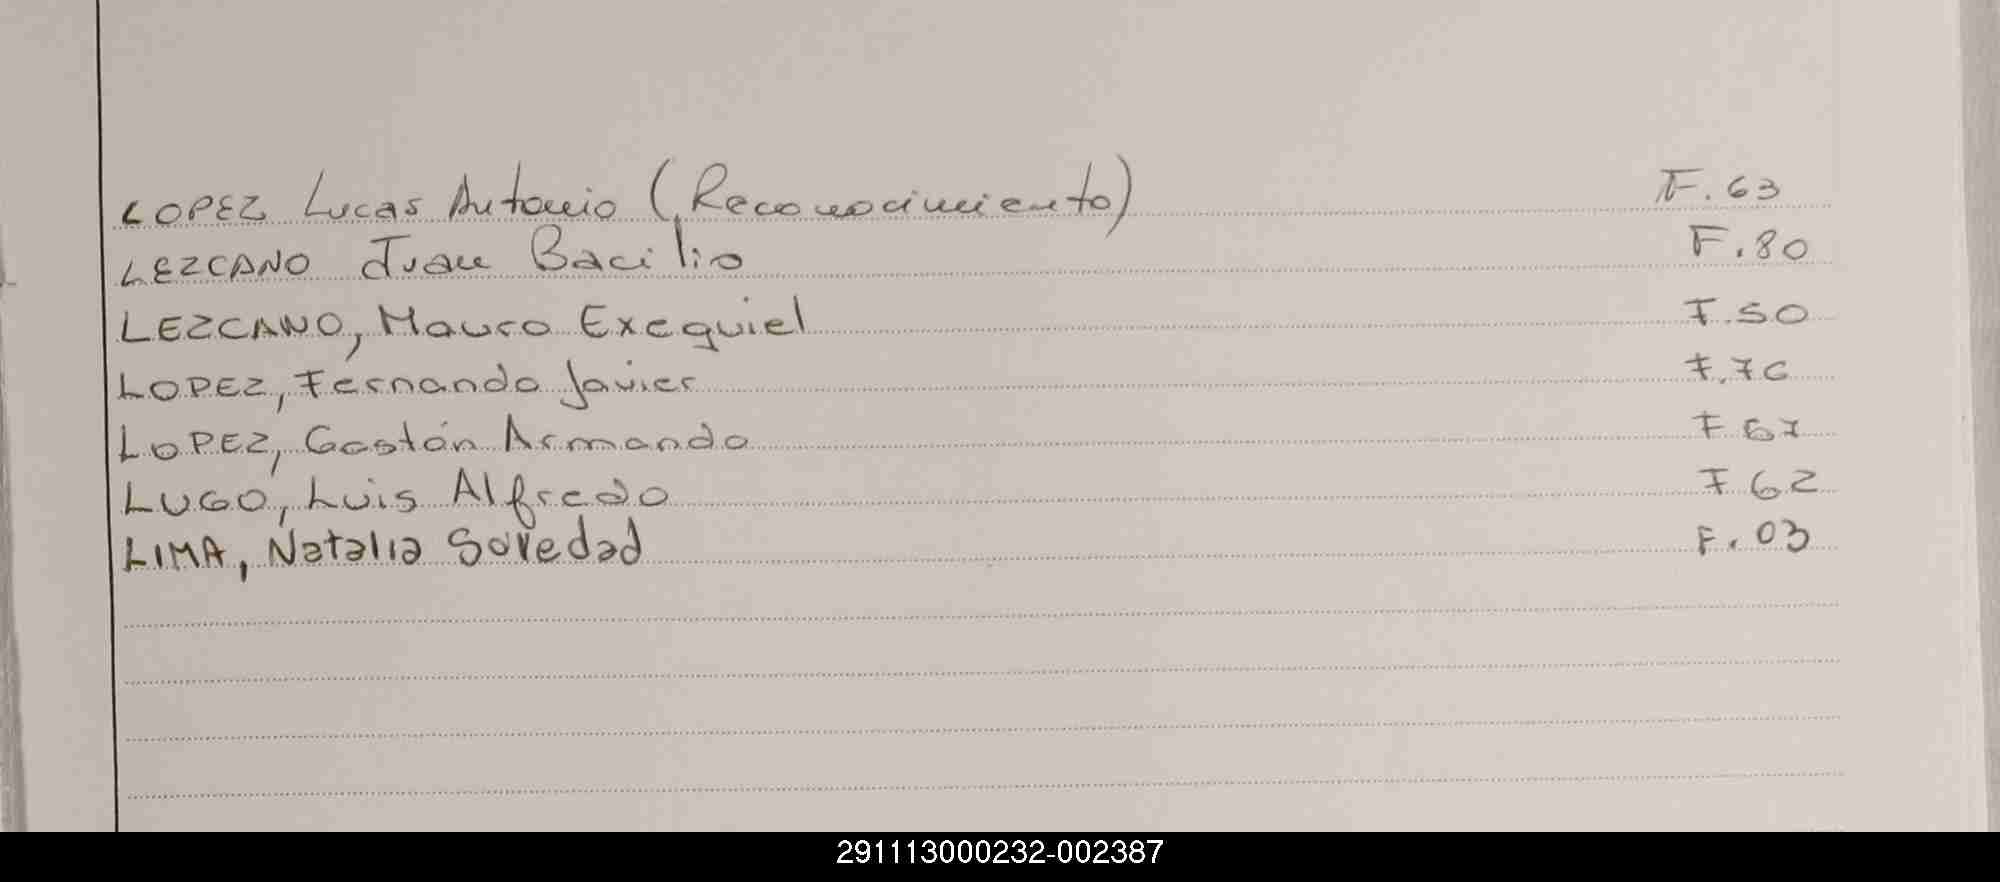 LOPEZ Lucas Antonio (Reconocimiento) F.63
LEZCANO Juan Bacilio F.80
LEZCANO, Mauro Exequiel F.50
LOPEZ, Fernando Javier F.76
LOPEZ, Gastón Armando F 67
LUGO, Luis Alfredo F 62
LIMA, Natalia Soledad F.03
291113000232-002387